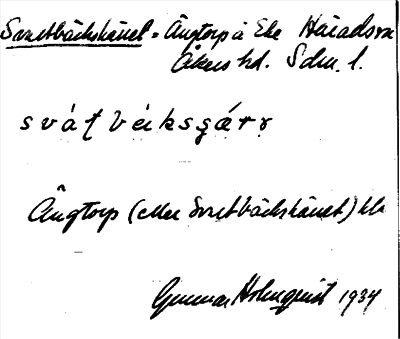 Svartbäckskärret = Ängtorp å Eke Häradsra
Åkers hd. Sdm. l.
svát̨ béiksgárr
Ängtorp (eller Svartbäckskärret) kl.
Gunnar Holmquist 1934